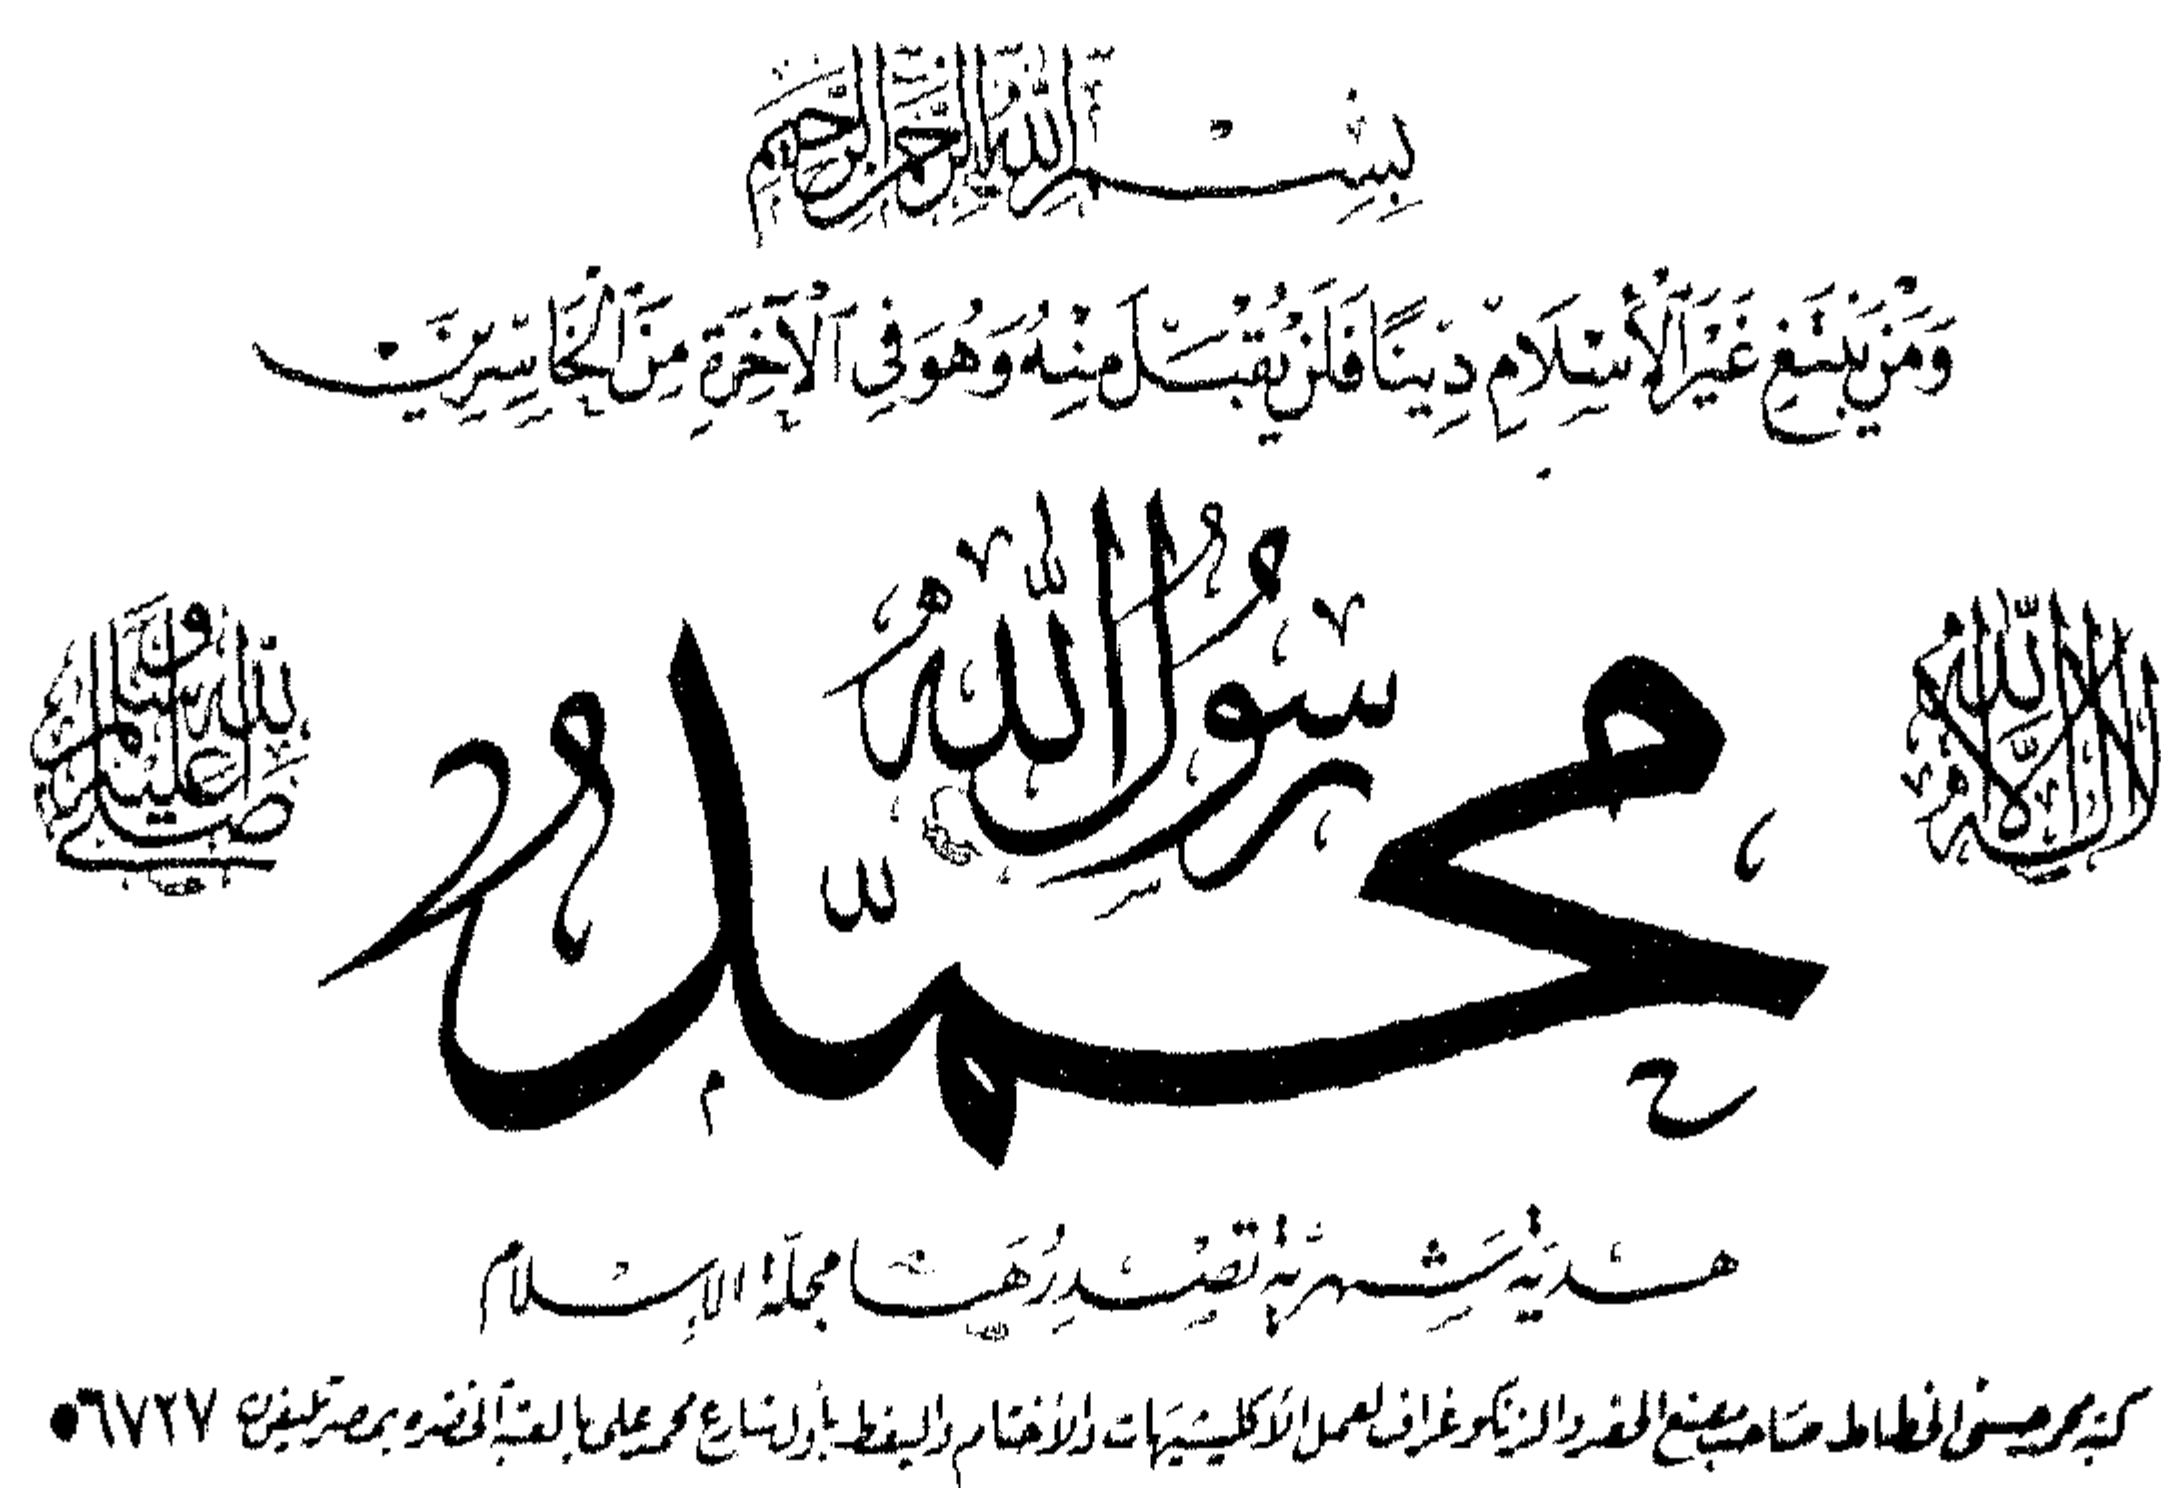 بِسْمِ اللهِ الرَّحْمٰنِ الرَّحِيمِ
وَمَنْ يَبْتَغِ غَيْرَ الْأِسْلَامِ دِينًا فَلَنْ يُقْبَلَ مِنْهُ وَهُوَ فِي الْآخِرَةِ مِنَ الْخَاسِرِينَ
لا إله إلا الله
محمد رسول الله
صلى الله عليه وسلم
هدية شهرية تصدرها مجلة الإسلام
كتبه محمد حسنى الخطاط صاحب مصنع الحفر والزنكوغراف لعمل الأكليشيهات والأختام واليفط بأول شارع محمد على بالعتبة الخضره بمصر تليفون ٦٧٢٧